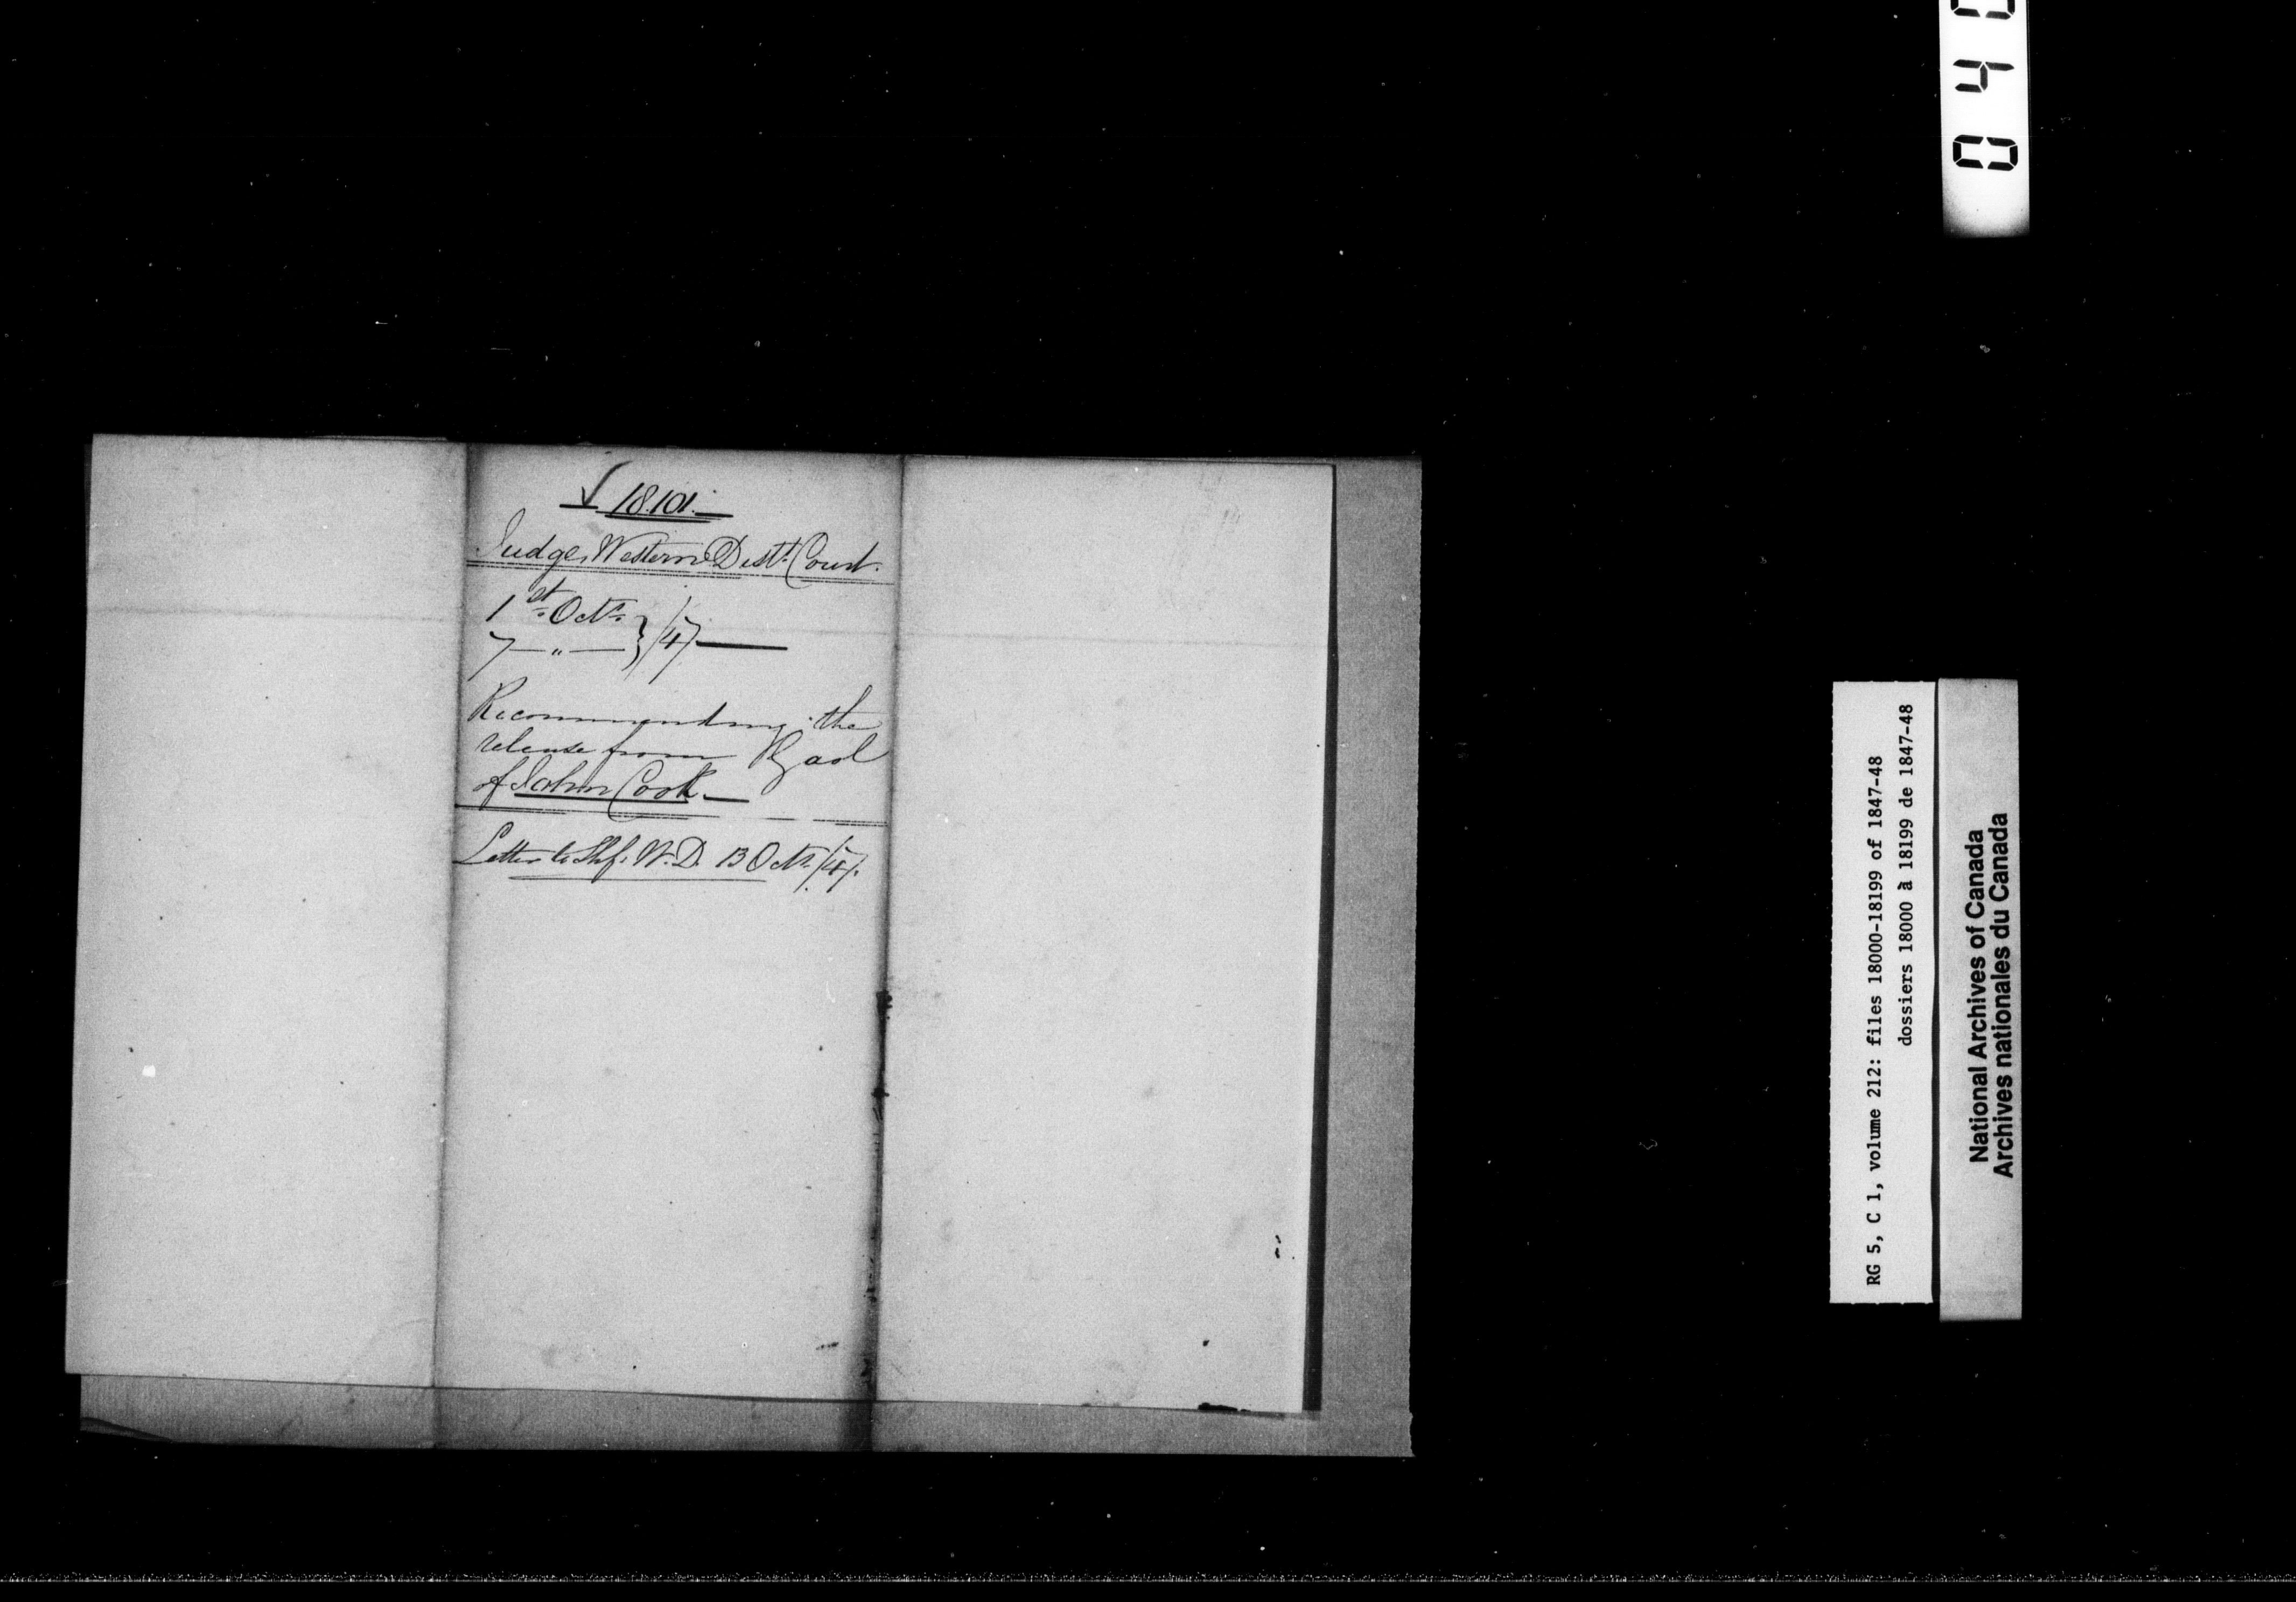 18.101.
Judge, Western Distt. Court.
1st Octr.
7 — " — } /47
Recommending the
release from Gaol
of John Cook.
Letter to Shf. W. D. 13 Octr. /47.
RG 5, C 1, volume 212: files 18000-18199 of 1847-48
dossiers 18000 à 18199 de 1847-48
National Archives of Canada
Archives nationales du Canada
0 4